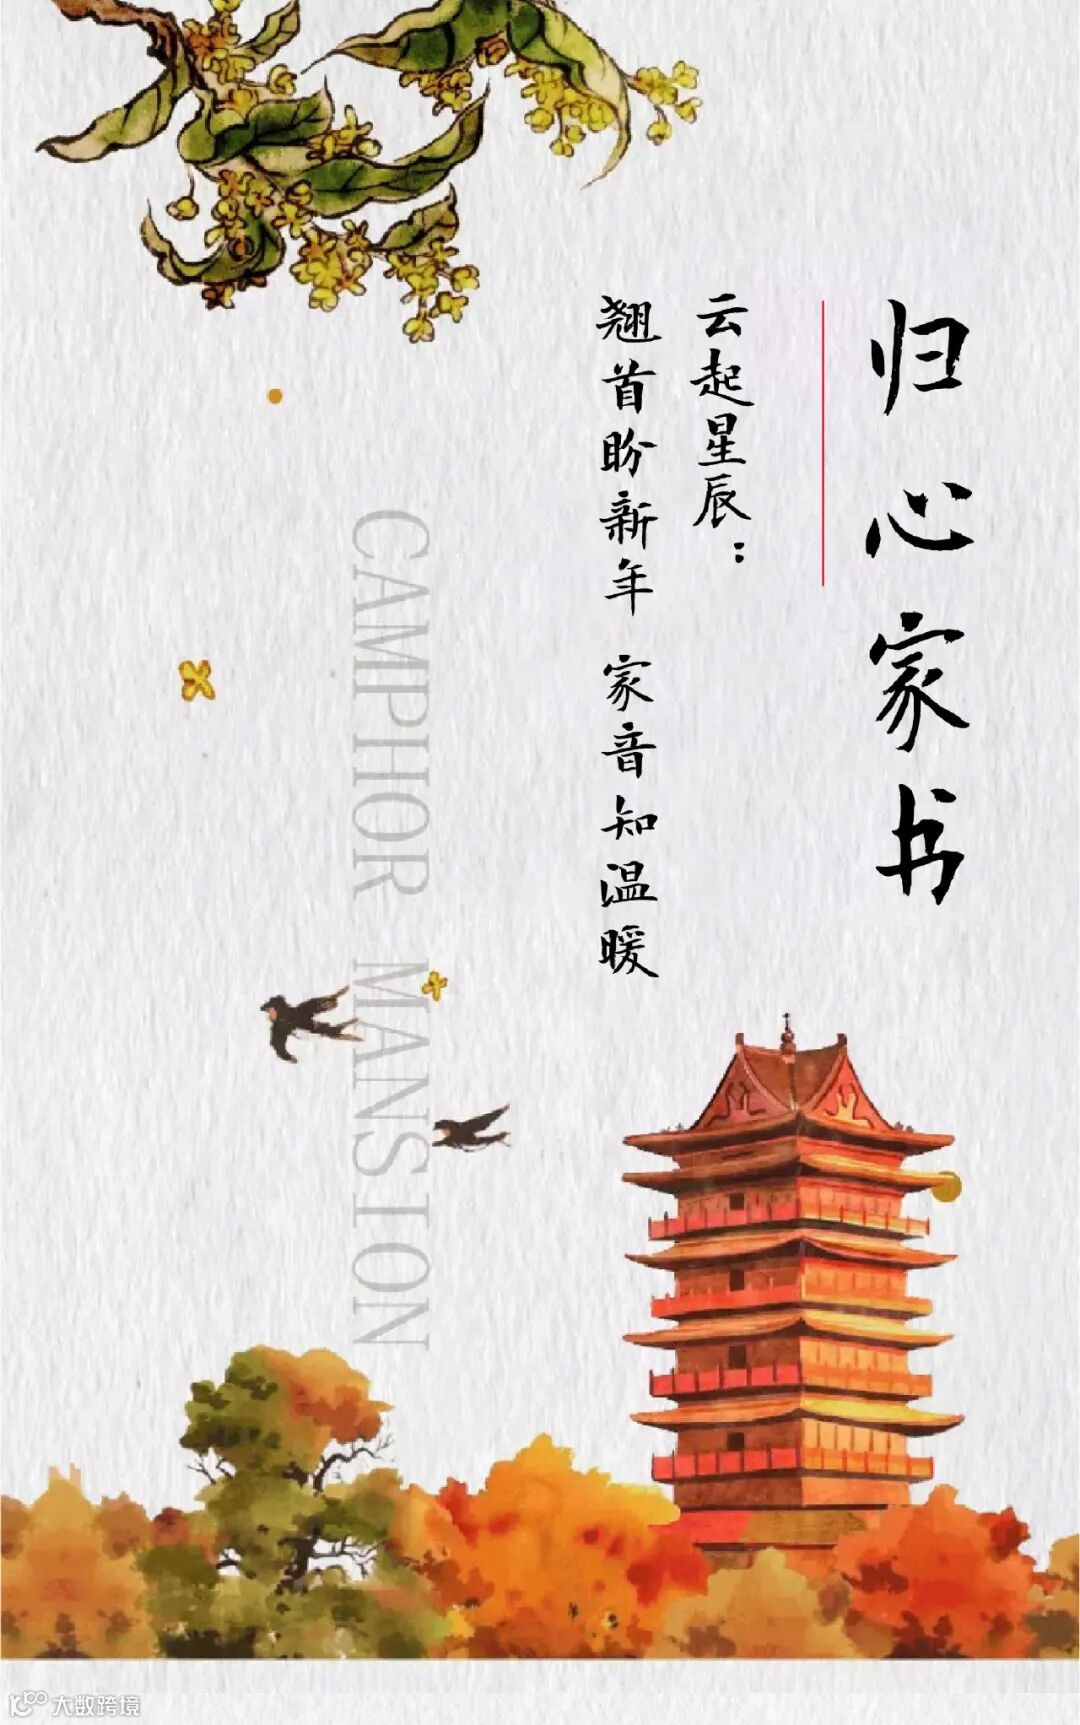 归心家书
云起星辰：
翘首盼新年 家音知温暖
CAMPHOR MANSION
大数跨境